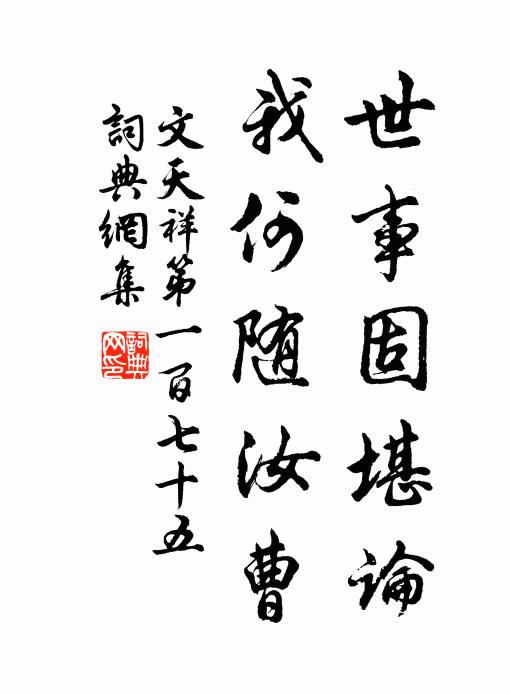 世事固堪論
我何随汝曹
文天祥第一百七十五
詞典網集
詞典網印